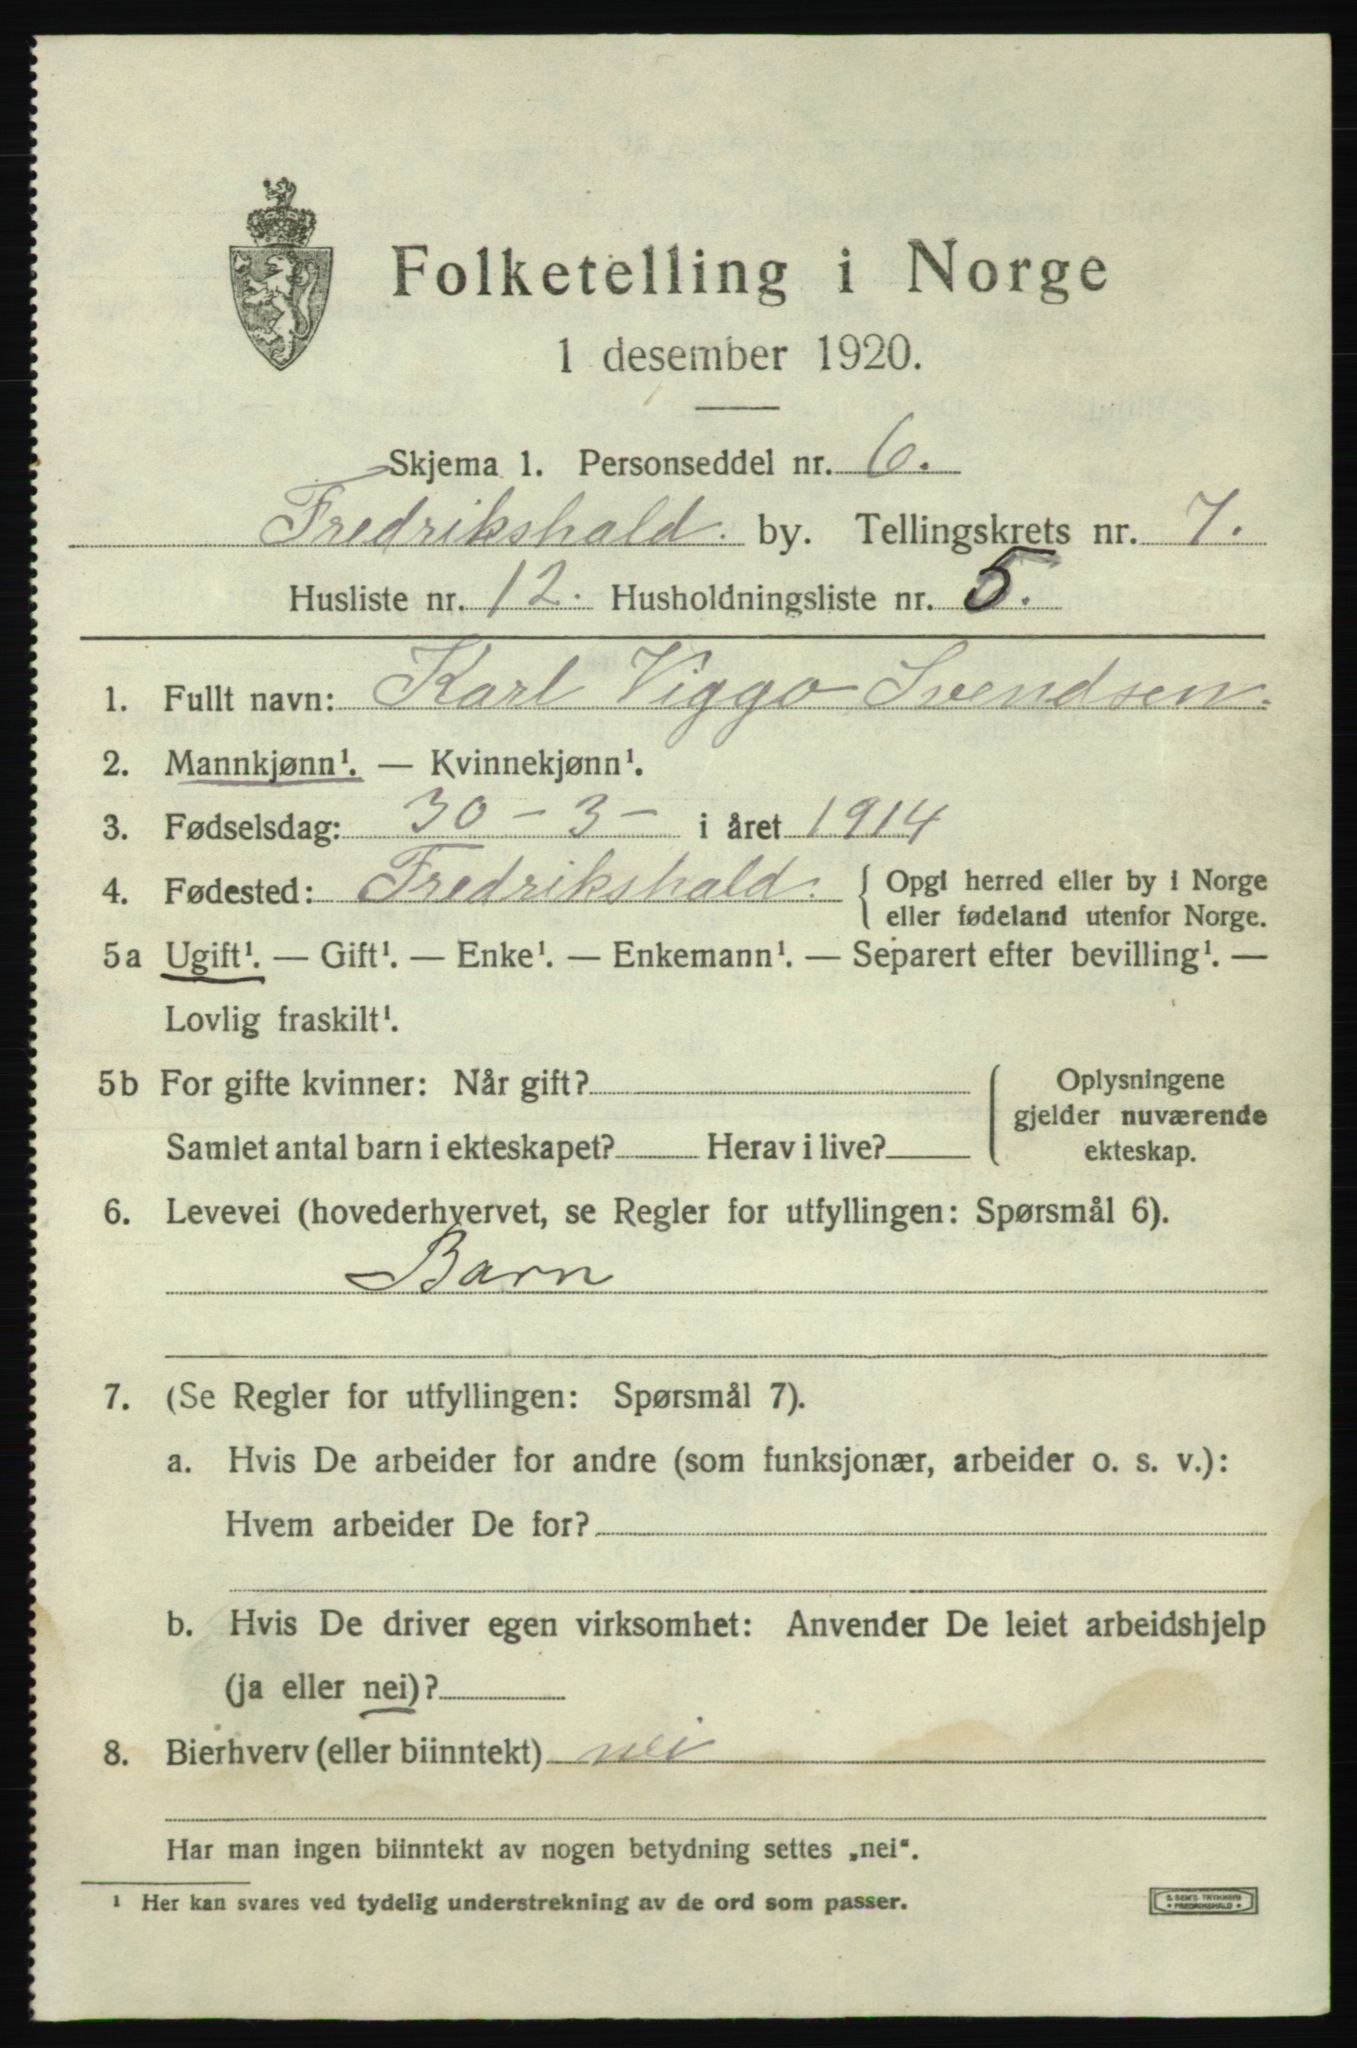 Folketelling i Norge
1 desember 1920.
Skjema 1. Personseddel nr. 6.
Fredrikshald. by. Tellingskrets nr. 7.
Husliste nr. 12. Husholdningsliste nr. 5.
1. Fullt navn: Karl Viggo Svendsen.
2. Mannkjønn¹. — Kvinnekjønn¹.
3. Fødselsdag: 30 - 3 - i året 1914
4. Fødested: Fredrikshald. { Opgi herred eller by i Norge
eller fødeland utenfor Norge.
5a Ugift¹. — Gift¹. — Enke¹. — Enkemann¹. — Separert efter bevilling¹. —
Lovlig fraskilt¹.
5b For gifte kvinner: Når gift?
Samlet antal barn i ekteskapet? Herav i live?
Oplysningene
gjelder nuværende
ekteskap.
6. Levevei (hovederhvervet, se Regler for utfyllingen: Spørsmål 6).
Barn
7. (Se Regler for utfyllingen: Spørsmål 7).
a. Hvis De arbeider for andre (som funksjonær, arbeider o. s. v.):
Hvem arbeider De for?
b. Hvis De driver egen virksomhet: Anvender De leiet arbeidshjelp
(ja eller nei)?
8. Bierhverv (eller biinntekt) nei
Har man ingen biinntekt av nogen betydning settes „nei“.
¹ Her kan svares ved tydelig understrekning av de ord som passer.
FREDRIKSHALD